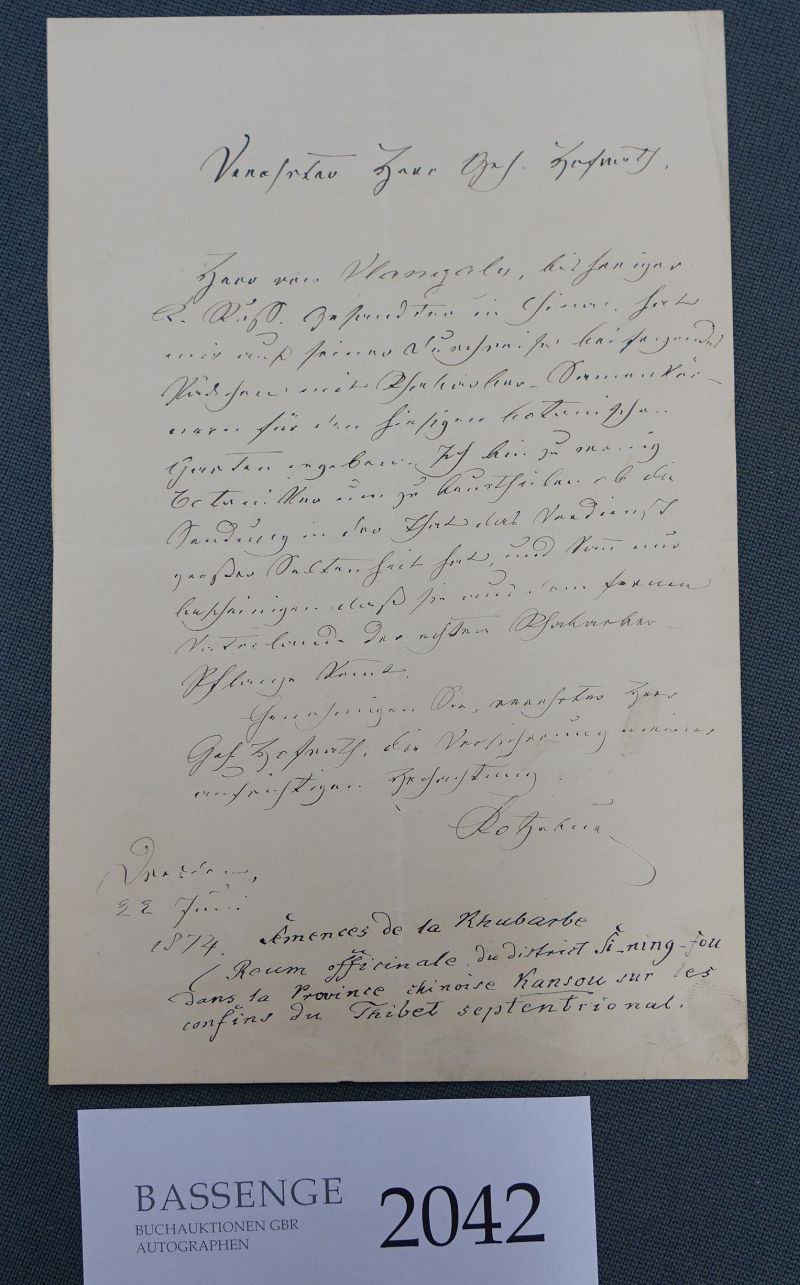 Verehrter Herr Geh. Hofrath,
Herr von Vlangaly, bisheriger
K. Russ. Gesandter in China, hat
mir auf seiner Durchreise beifolgendes
Päckchen mit Rhabarber-Samenkör-
nern für den hiesigen botanischen
Garten gegeben. Ich bin zu wenig
Botaniker um zu beurtheilen ob die
Sendung in der That das Verdienst
großer Seltenheit hat, und kann nur
bescheinigen daß sie aus dem fernen
Vaterlande der echten Rhabarber-
Pflanze kommt.
Genehmigen Sie, verehrter Herr
Geh Hofrath, die Versicherung meiner
aufrichtigen Hochachtung
Kotzebue
Dresden,
22 Juni
1874.
Semences de la Rhubarbe
(Reum officinale du district Si-ning-fou
dans la Province chinoise Kansou sur les
confins du Thibet septentrional.
BASSENGE
BUCHAUKTIONEN GBR
AUTOGRAPHEN
2042